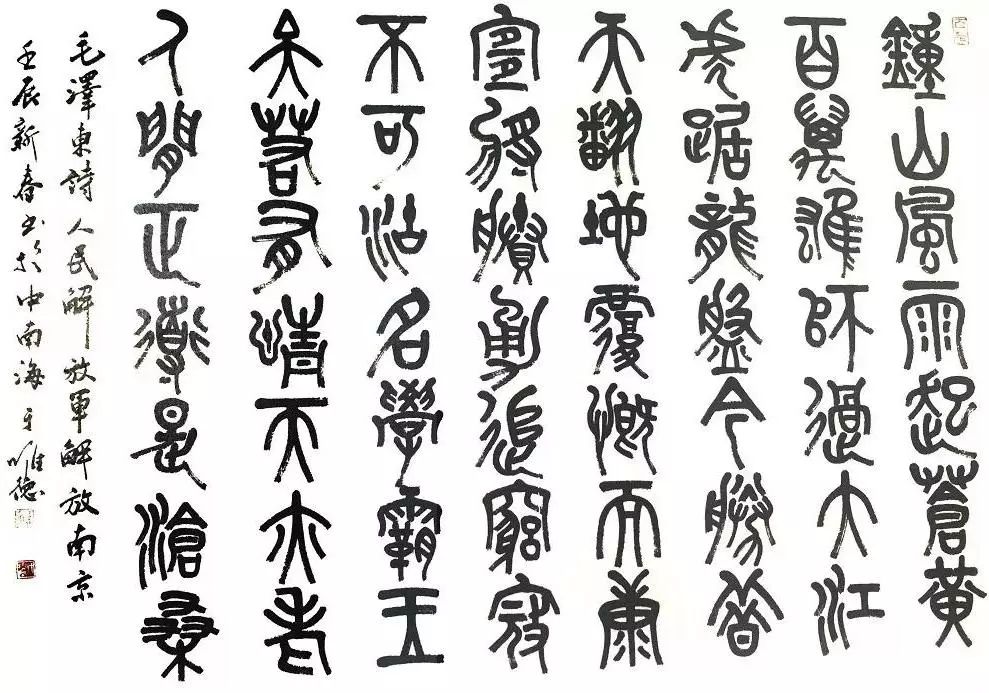 鍾山風雨起蒼黃
百萬雄師過大江
虎踞龍盤今勝昔
天翻地覆慨而康
宜將賸勇追窮寇
不可沽名學霸王
天若有情天亦老
人間正道是滄桑
毛澤東詩人民解放軍解放南京
壬辰新春书於中南海 唯德